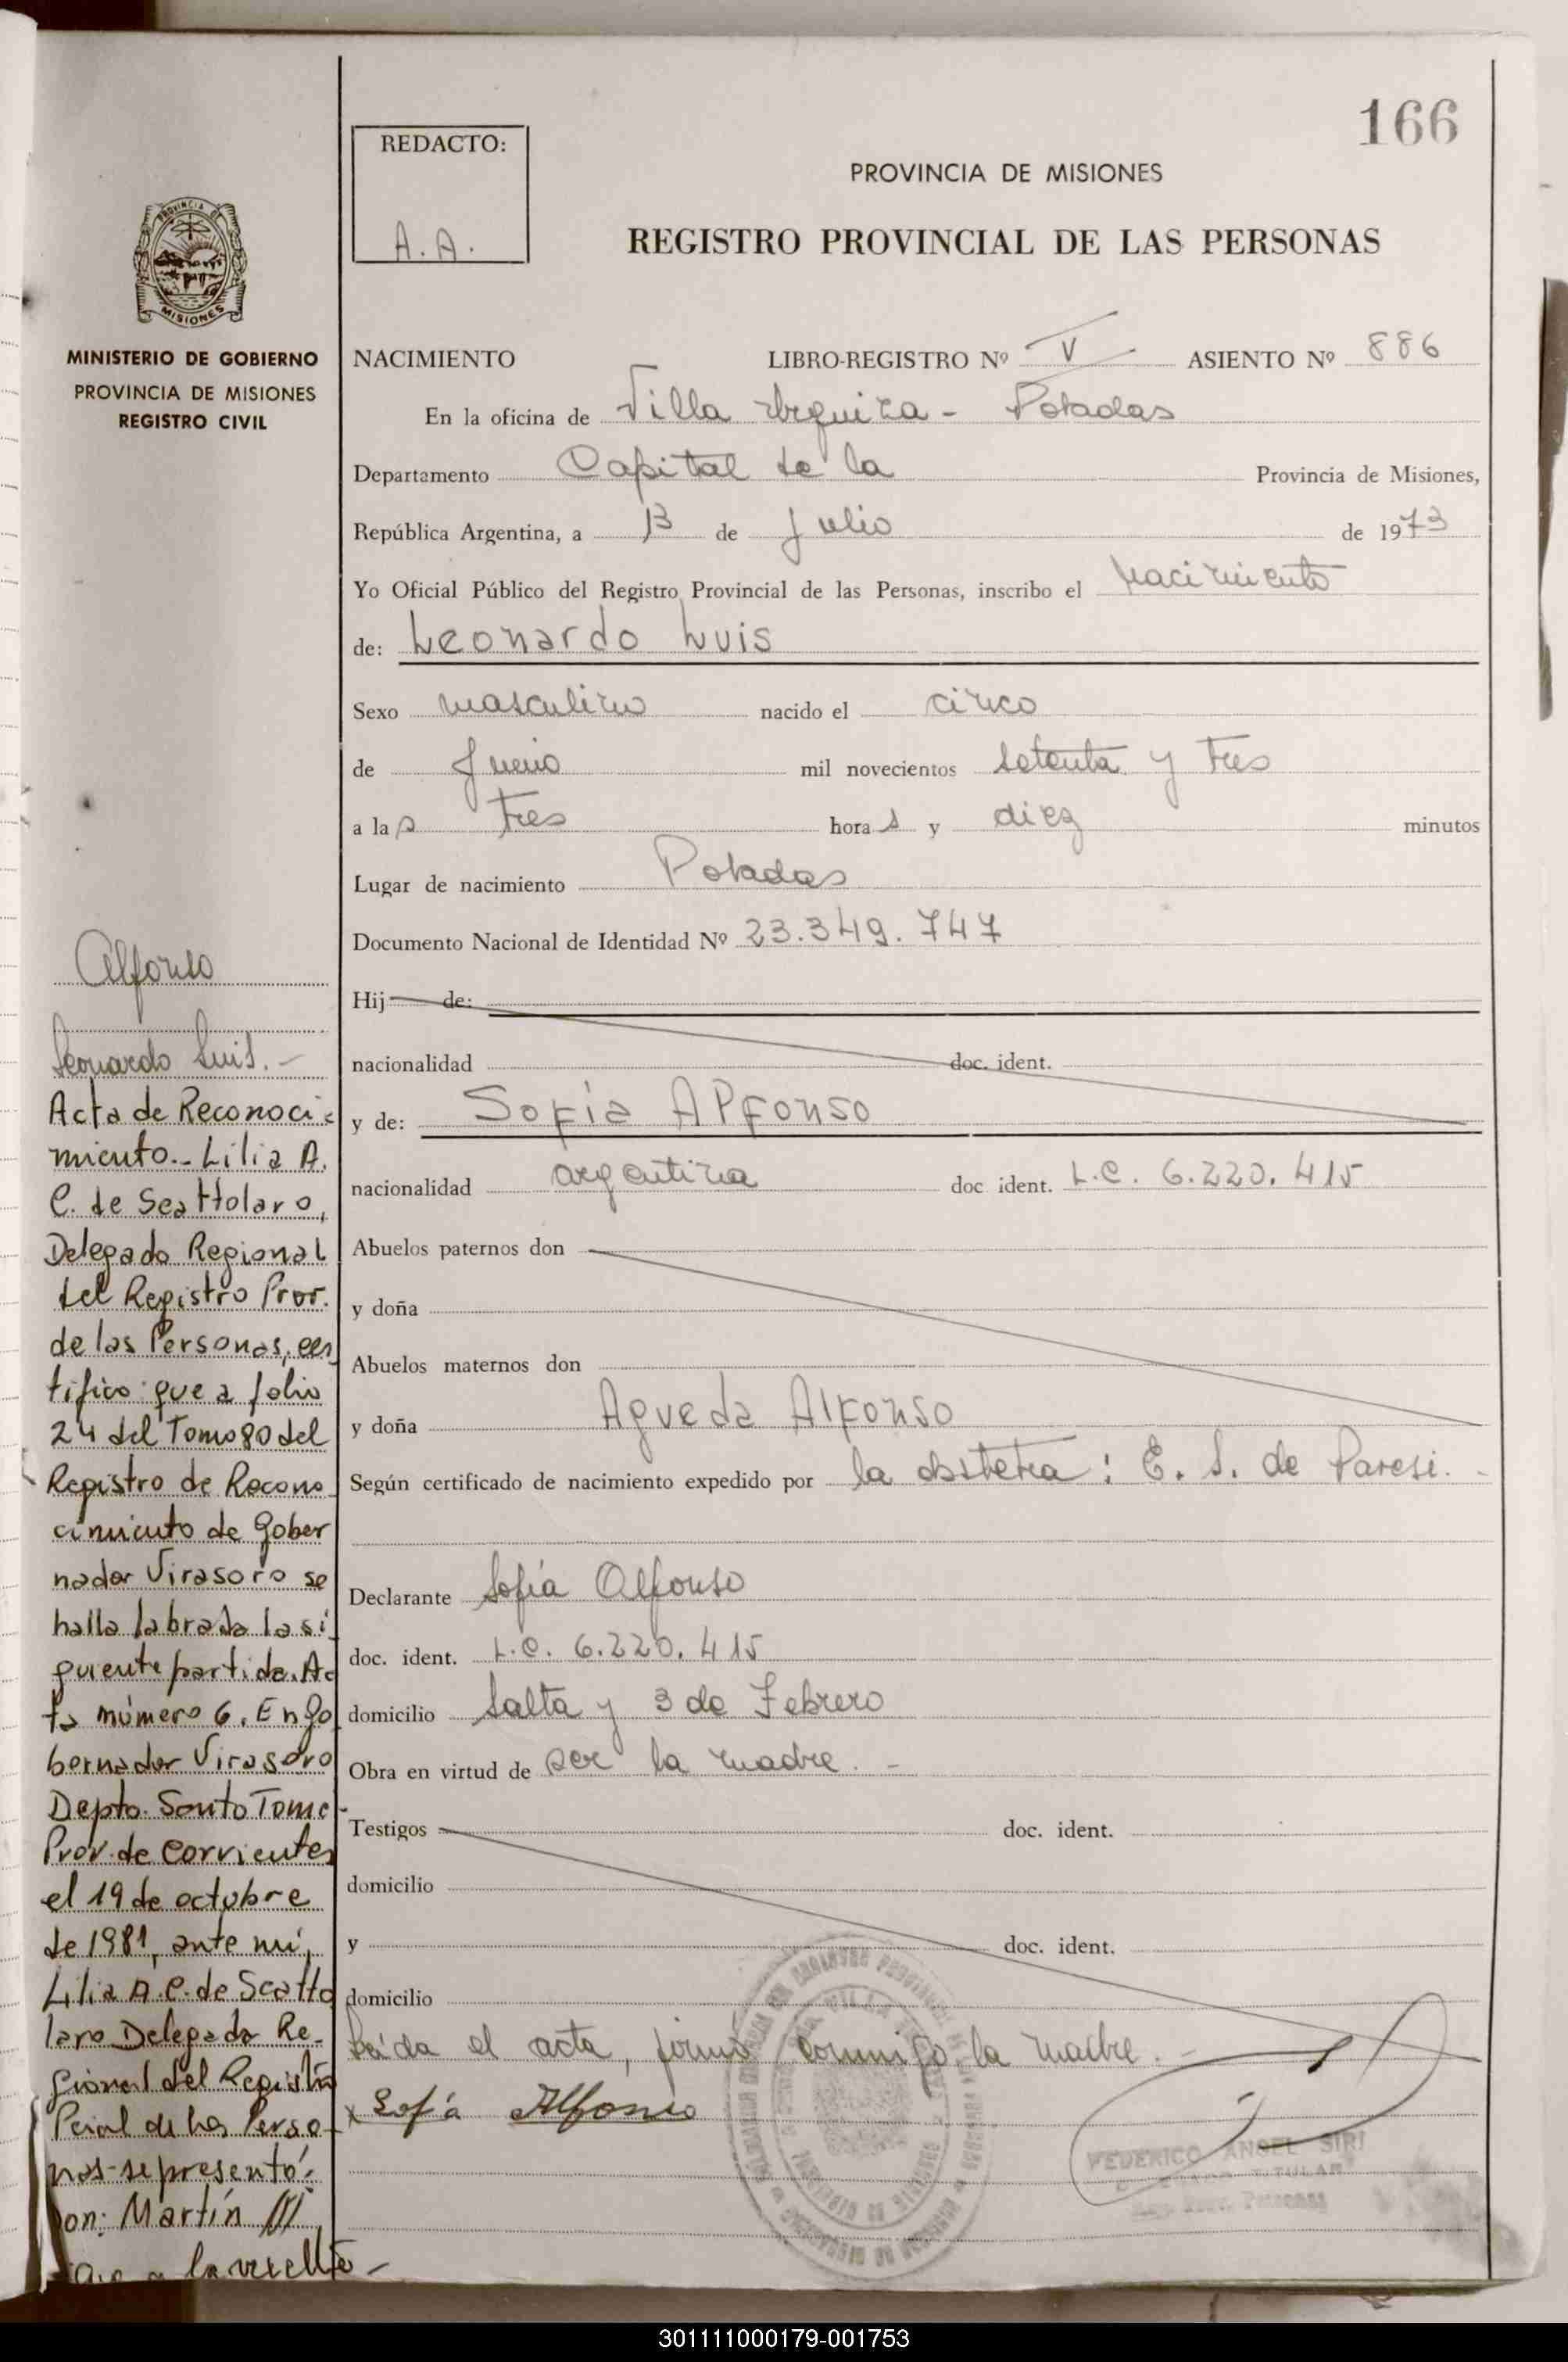 166
REDACTO:
A.A.
PROVINCIA DE MISIONES
REGISTRO PROVINCIAL DE LAS PERSONAS
PROVINCIA DE
MISIONES
MINISTERIO DE GOBIERNO
PROVINCIA DE MISIONES
REGISTRO CIVIL
NACIMIENTO LIBRO-REGISTRO Nº V ASIENTO Nº 886
En la oficina de Villa Urquiza - Posadas
Departamento Capital de la Provincia de Misiones,
República Argentina, a 13 de Julio de 1973
Yo Oficial Público del Registro Provincial de las Personas, inscribo el Nacimiento
de: Leonardo Luis
Sexo masculino nacido el cinco
de Junio mil novecientos setenta y tres
a las tres horas y diez minutos
Lugar de nacimiento Posadas
Documento Nacional de Identidad Nº 23.349.747
Hij de:
nacionalidad doc. ident.
y de: Sofía Alfonso
nacionalidad argentina doc ident. L.C. 6.220.415
Abuelos paternos don
y doña
Abuelos maternos don
y doña Agueda Alfonso
Según certificado de nacimiento expedido por la obstetra: E. S. de Paresi. -
Declarante Sofía Alfonso
doc. ident. L.C. 6.220.415
domicilio Salta y 3 de Febrero
Obra en virtud de ser la madre. -
Testigos doc. ident.
domicilio
y doc. ident.
domicilio
Leída el acta, firma conmigo, la madre. -
x Sofía Alfonso
FEDERICO ANGEL SIRI
TITULAR
Alfonso
Leonardo Luis. -
Acta de Reconoci-
miento.- Lilia A.
C. de Scattolaro,
Delegado Regional
del Registro Prov.
de las Personas, cer
tifico que a folio
24 del Tomo 80 del
Registro de Recono
cimiento de Gober
nador Virasoro se
halla labrada la si
guiente partida. Ac
ta número 6. En Go
bernador Virasoro
Depto. Santo Tomé-
Prov. de Corrientes
el 19 de octubre
de 1981, ante mí,
Lilia A. C. de Scatto
laro Delegada Re-
gional del Registro
Pcial de las Perso-
nas- se presentó:
Don: Martín
a la vuelta-
301111000179-001753